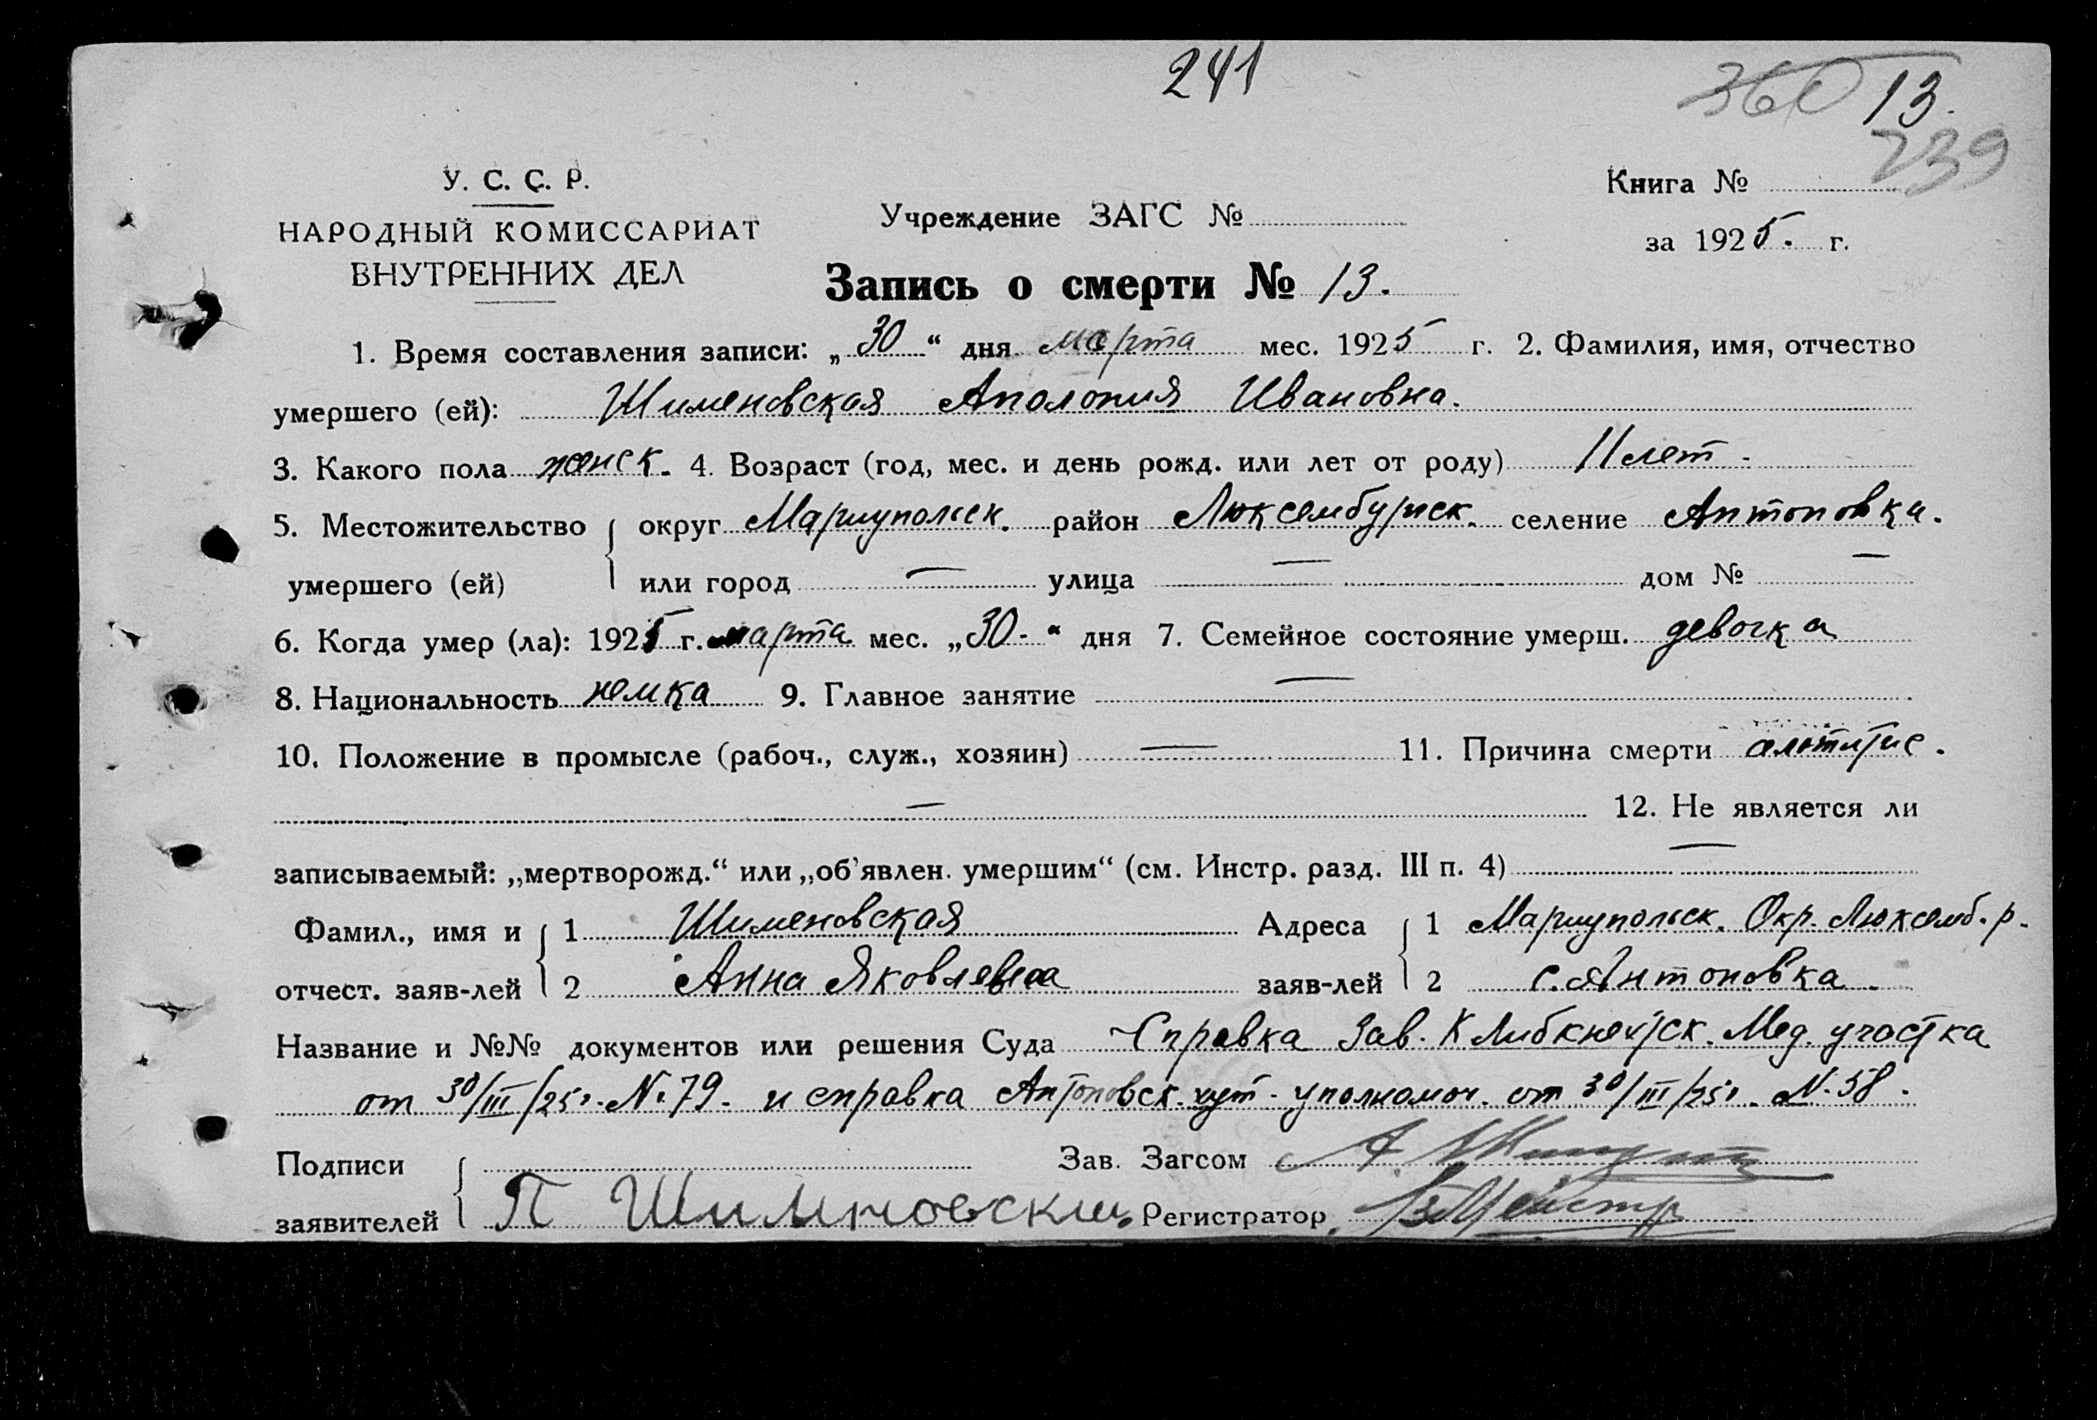 241
360 13.
239
У. С. С. Р.
НАРОДНЫЙ КОМИССАРИАТ
ВНУТРЕННИХ ДЕЛ
Учреждение ЗАГС №
Книга №
за 1925. г.
Запись о смерти № 13.
1. Время составления записи: „30“ дня марта мес. 1925 г. 2. Фамилия, имя, отчество
умершего (ей): Шименовская Аполония Ивановна.
3. Какого пола женск. 4. Возраст (год, мес. и день рожд. или лет от роду) 11 лет.
5. Местожительство округ Мариупольск. район Люксембургск. селение Антоновка.
умершего (ей) или город — улица — дом № —
6. Когда умер (ла): 1925 г. марта мес. „30-“ дня 7. Семейное состояние умерш. девочка
8. Национальность немка 9. Главное занятие —
10. Положение в промысле (рабоч., служ., хозяин) — 11. Причина смерти
— 12. Не является ли
записываемый: „мертворожд.“ или „об'явлен. умершим“ (см. Инстр. разд. III п. 4) —
Фамил., имя и 1 Шименовская Адреса 1 Мариупольск. Окр. Люксемб. р.
отчест. заяв-лей 2 Анна Яковлевна заяв-лей 2 с. Антоновка.
Название и №№ документов или решения Суда Справка Зав. К Либкнехтск. Мед. участка
от 30/III/25г. № 79. и справка Антоновск. хут. уполномоч. от 30/III/25г. № 58.
Подписи Зав. Загсом
заявителей П Шимновски Регистратор